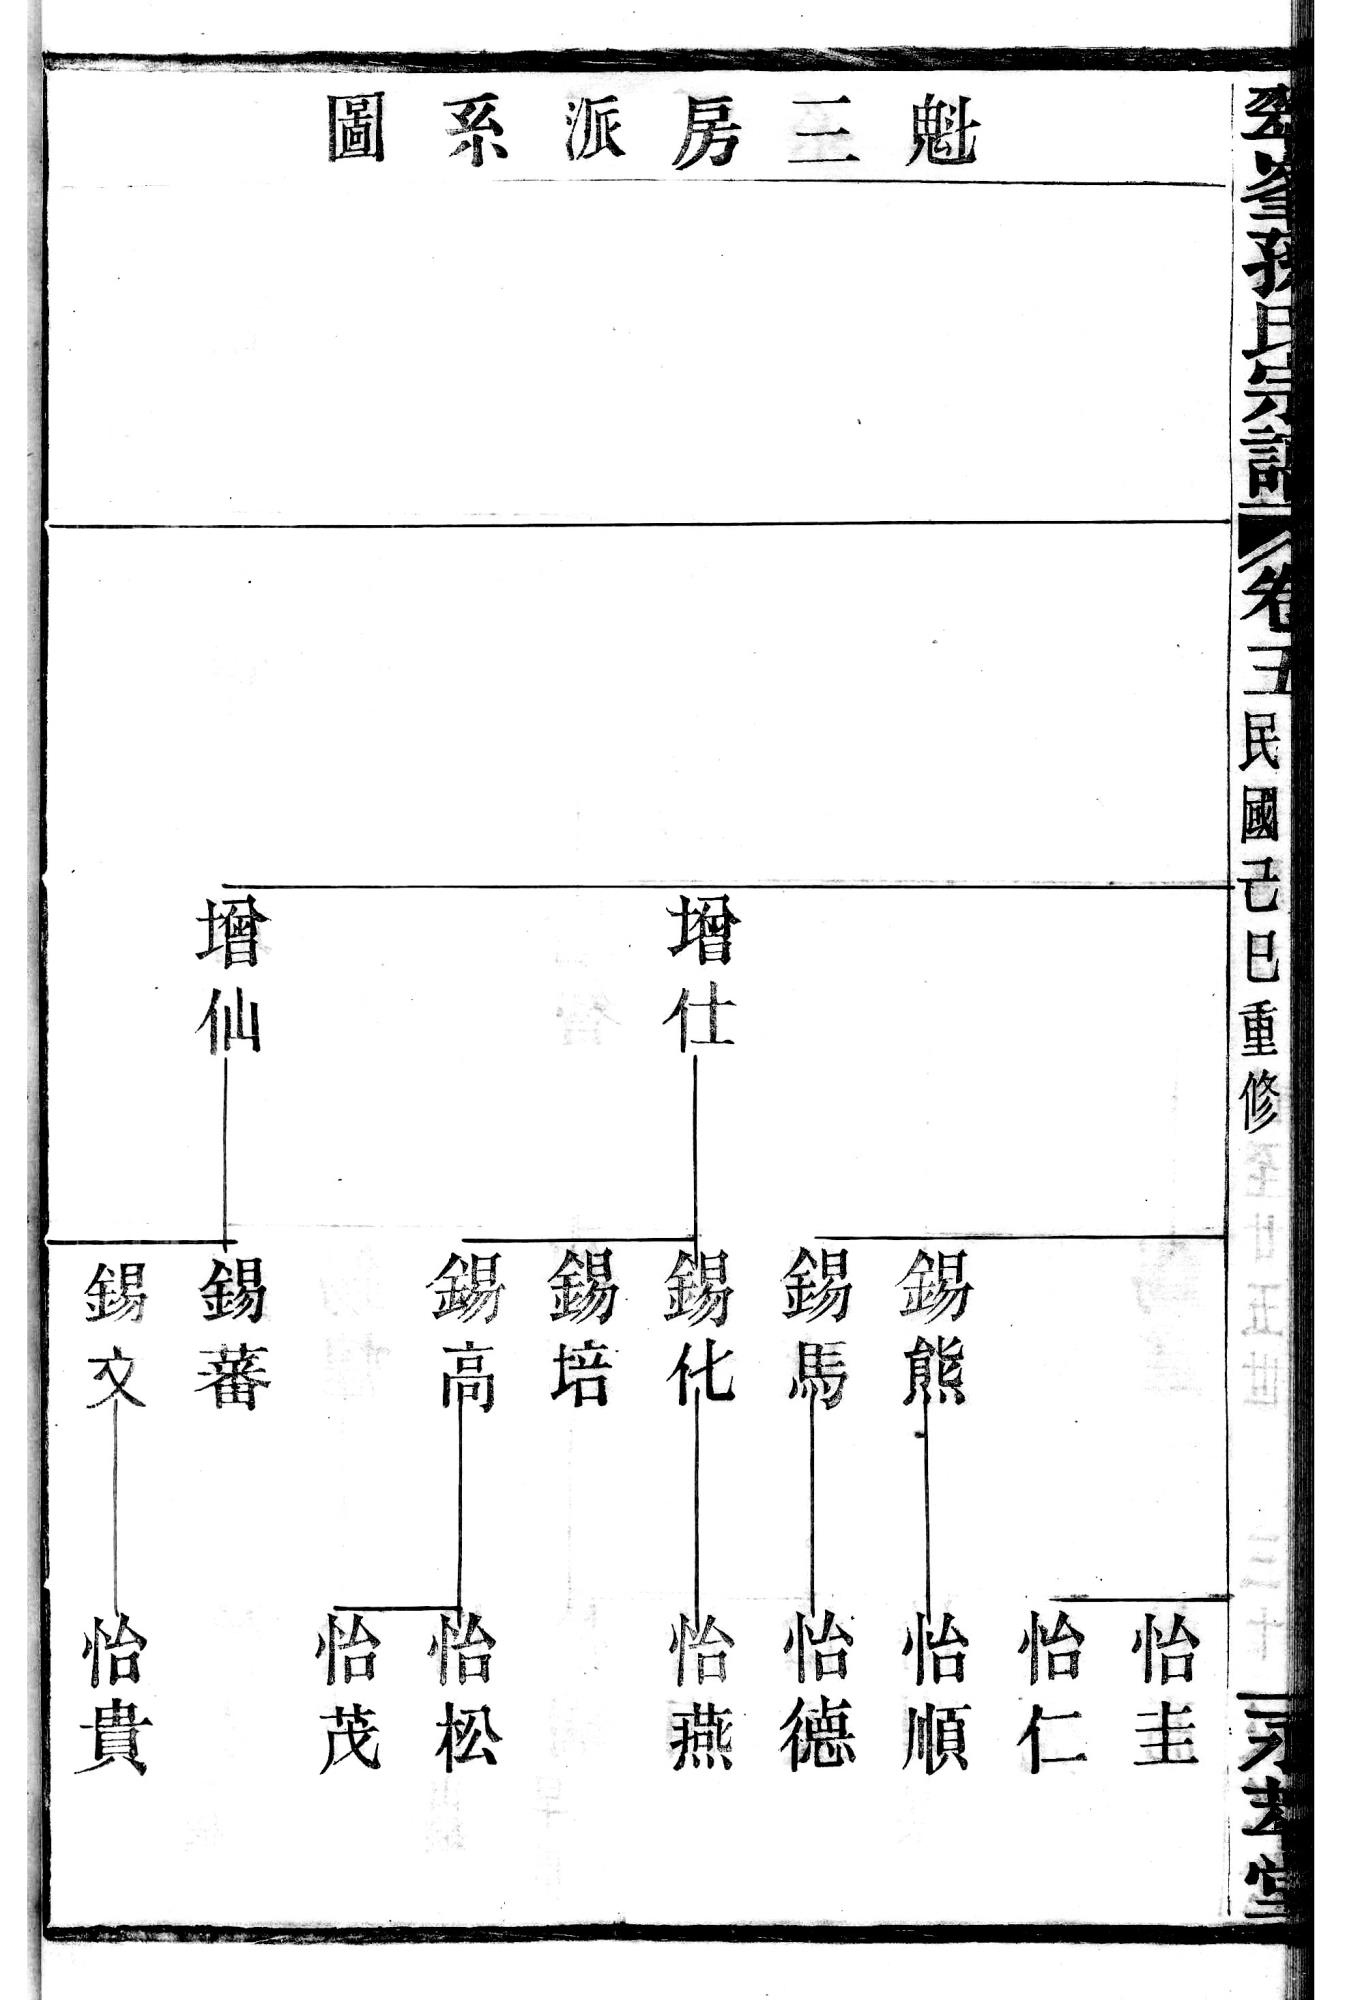 魁三房派系圖
孫氏宗譜
卷五
民國己巳重修
堂
增仕
增仙
錫熊
錫馬
錫化
錫培
錫高
錫蕃
錫文
怡圭
怡仁
怡順
怡德
怡燕
怡松
怡茂
怡貴